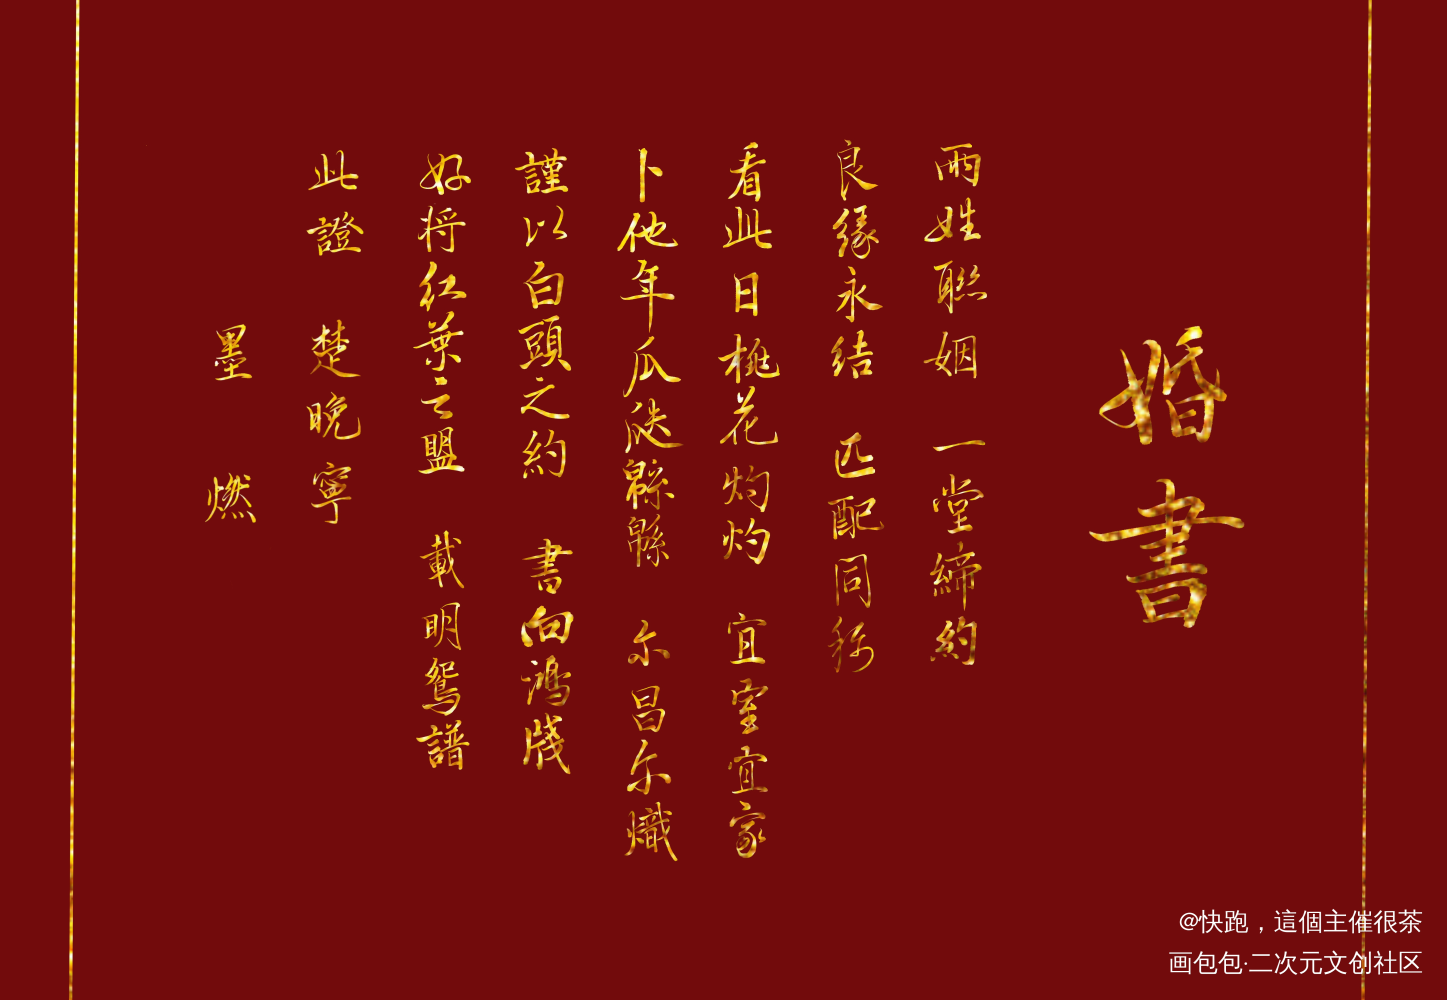 婚書
兩姓聯姻 一堂締約
良緣永结 匹配同称
看此日桃花灼灼 宜室宜家
卜他年瓜瓞緜緜 尔昌尔熾
謹以白頭之約 書向鸿牋
好将红葉之盟 載明鴛譜
此證 楚晚寧
墨燃
@快跑，這個主催很茶
画包包·二次元文创社区